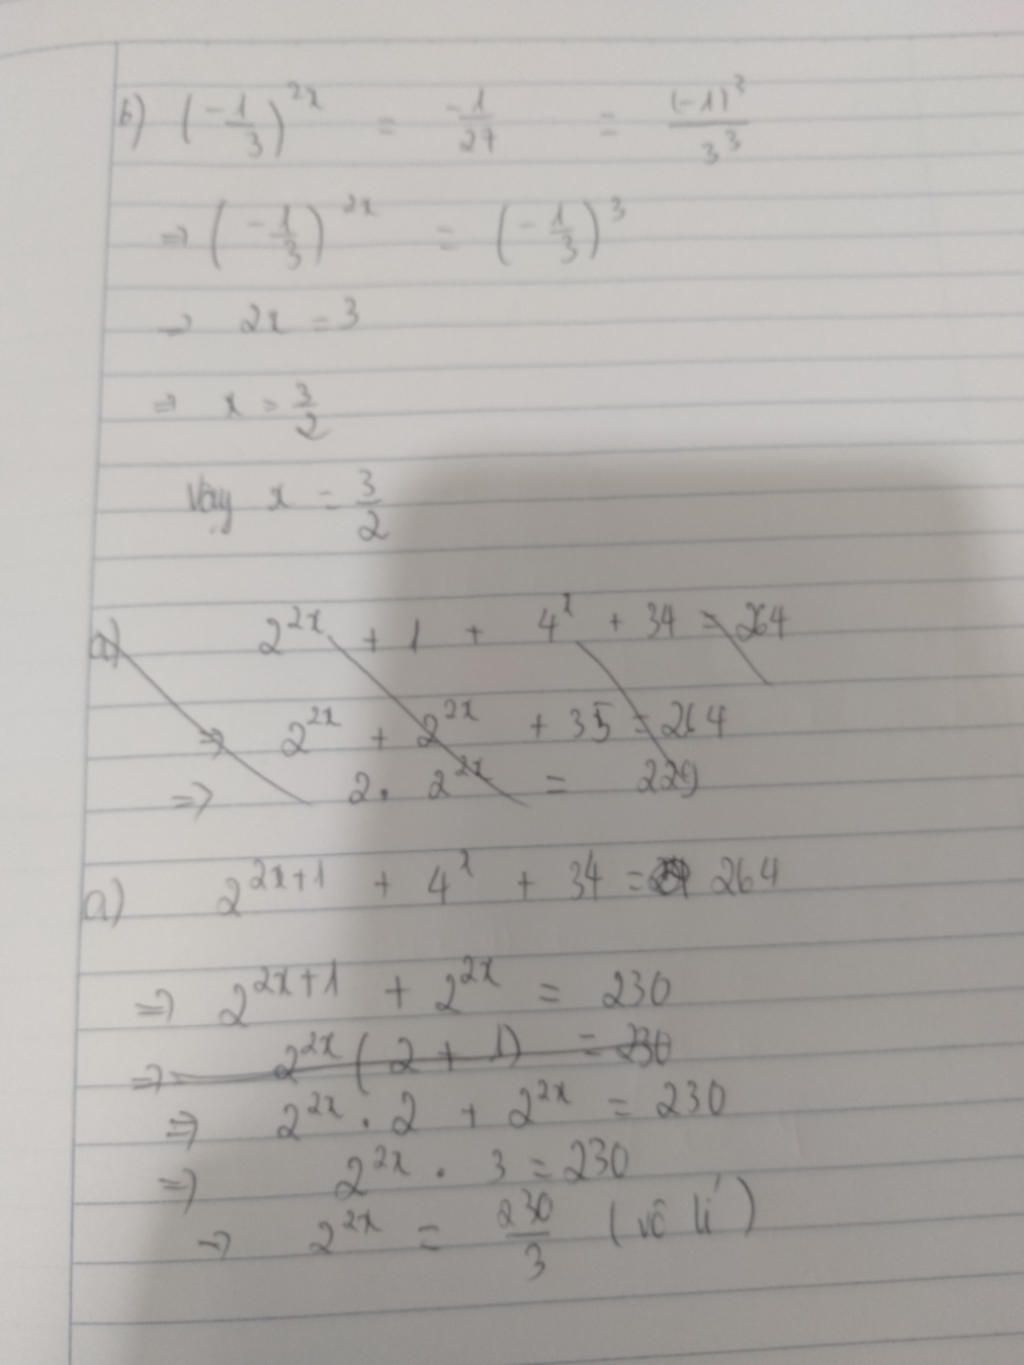 b) (-1/3)^2x = -1/27 = (-1)^3/3^3
=> (-1/3)^2x = (-1/3)^3
=> 2x = 3
=> x = 3/2
Vậy x = 3/2
a) 2^2x + 1 + 4^x + 34 = 264
=> 2^2x + 2^2x + 35 = 264
=> 2. 2^2x = 229
a) 2^2x+1 + 4^x + 34 = 264
=> 2^2x+1 + 2^2x = 230
=> 2^2x (2 + 1) = 230
=> 2^2x . 2 + 2^2x = 230
=> 2^2x . 3 = 230
=> 2^2x = 230/3 (vô lí)